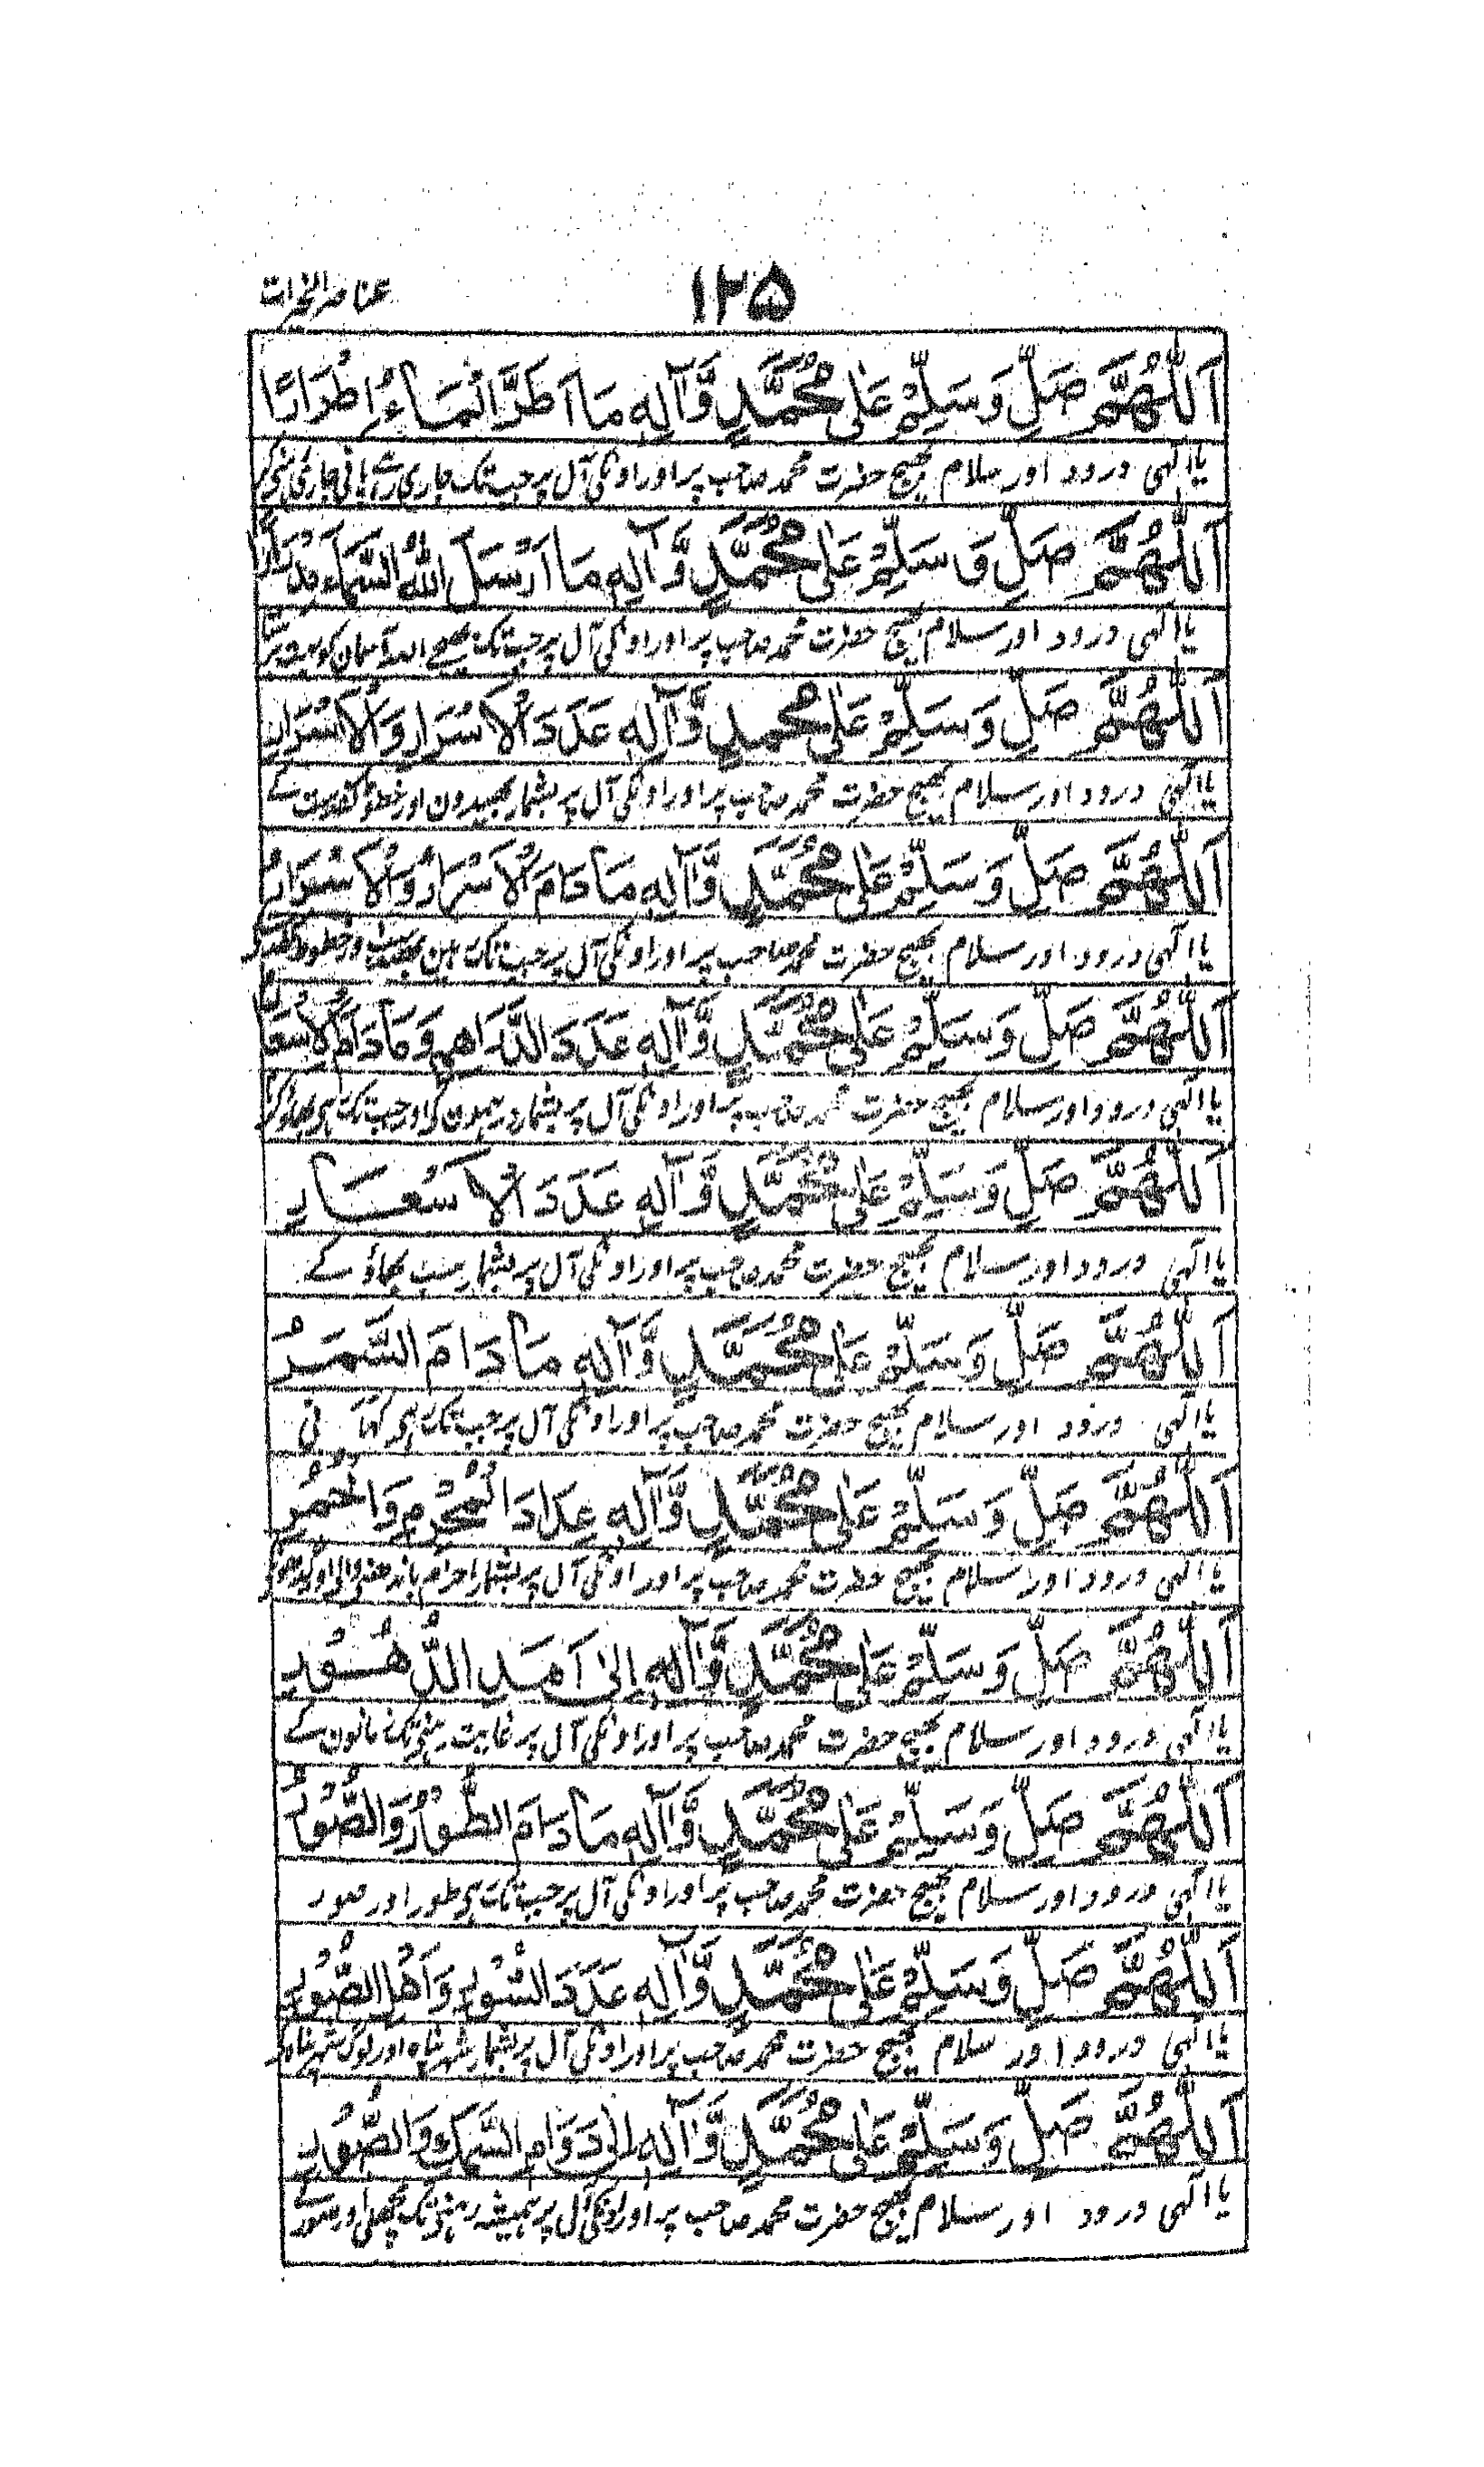 ۱۲۵
عناصر الخیرات
اَللّٰهُمَّ صَلِّ وَسَلِّمْ عَلٰى مُحَمَّدٍ وَّاٰلِهٖ مَا اَطَرَّ الْمَاءُ اِطْرَارًا
یا الٰہی درود اور سلام بھیج حضرت محمد صاحب پر اور اونکی آل پر جب تک جاری رہے پانی جاری
اَللّٰهُمَّ صَلِّ وَسَلِّمْ عَلٰى مُحَمَّدٍ وَّاٰلِهٖ مَا اَرْسَلَ اللّٰهُ السَّمَاءَ مِدْرَارًا
یا الٰہی درود اور سلام بھیج حضرت محمد صاحب پر اور اونکی آل پر جب تک بھیجے اللہ آسمان کو بہت
اَللّٰهُمَّ صَلِّ وَسَلِّمْ عَلٰى مُحَمَّدٍ وَّاٰلِهٖ عَدَدَ الْاَسْرَارِ وَالْاَسْرَارِ
یا الٰہی درود اور سلام بھیج حضرت محمد صاحب پر اور اونکی آل پر بشمار بھیدون اور خطوط کفدست کے
اَللّٰهُمَّ صَلِّ وَسَلِّمْ عَلٰى مُحَمَّدٍ وَّاٰلِهٖ مَا دَامَ الْاَسْرَارُ وَالْاَسْرَارُ
یا الٰہی درود اور سلام بھیج حضرت محمد صاحب پر اور اونکی آل پر جب تک ہین بھید اور خطوط
اَللّٰهُمَّ صَلِّ وَسَلِّمْ عَلٰى مُحَمَّدٍ وَّاٰلِهٖ عَدَدَ الدَّرَاهِمِ وَمَا دَامَ الْاَسْعَارُ
یا الٰہی درود اور سلام بھیج حضرت محمد صاحب پر اور اونکی آل پر بشمار درہمون کے اور جب تک ہی
اَللّٰهُمَّ صَلِّ وَسَلِّمْ عَلٰى مُحَمَّدٍ وَّاٰلِهٖ عَدَدَ الْاَسْعَارِ
یا الٰہی درود اور سلام بھیج حضرت محمد صاحب پر اور اونکی آل پر بشمار سب بھاؤ کے
اَللّٰهُمَّ صَلِّ وَسَلِّمْ عَلٰى مُحَمَّدٍ وَّاٰلِهٖ مَا دَامَ السَّمَرُ
یا الٰہی درود اور سلام بھیج حضرت محمد صاحب پر اور اونکی آل پر جب تک ہی کہانی
اَللّٰهُمَّ صَلِّ وَسَلِّمْ عَلٰى مُحَمَّدٍ وَّاٰلِهٖ عِدَادَ الْمُحْرِمِ وَالْحُمُرِ
یا الٰہی درود اور سلام بھیج حضرت محمد صاحب پر اور اونکی آل پر بشمار احرام باندھنے والے اور
اَللّٰهُمَّ صَلِّ وَسَلِّمْ عَلٰى مُحَمَّدٍ وَّاٰلِهٖ اِلٰى اَمَدِ الدُّهُوْرِ
یا الٰہی درود اور سلام بھیج حضرت محمد صاحب پر اور اونکی آل پر غایت رہنے تک زمانون کے
اَللّٰهُمَّ صَلِّ وَسَلِّمْ عَلٰى مُحَمَّدٍ وَّاٰلِهٖ مَا دَامَ الطُّوْرُ وَالصُّوْرُ
یا الٰہی درود اور سلام بھیج حضرت محمد صاحب پر اور اونکی آل پر جب تک ہی طور اور صور
اَللّٰهُمَّ صَلِّ وَسَلِّمْ عَلٰى مُحَمَّدٍ وَّاٰلِهٖ عَدَدَ السُّوْرِ وَاَهْلِ الصُّوْرِ
یا الٰہی درود اور سلام بھیج حضرت محمد صاحب پر اور اونکی آل پر بشمار شہر پناہ اور لوگ
اَللّٰهُمَّ صَلِّ وَسَلِّمْ عَلٰى مُحَمَّدٍ وَّاٰلِهٖ اِلٰى دَوَامِ السَّمَكِ وَالصُّوْرِ
یا الٰہی درود اور سلام بھیج حضرت محمد صاحب پر اور اونکی آل پر ہمیشہ رہنے تک مچھلی اور صور کے